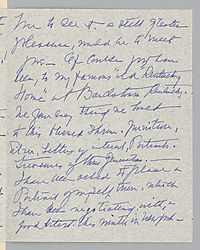 me to see it - a still greater
pleasure, would be to meet
you - Of course you have
been, to my famous "Old Kentucky
Home" at Bardstown Kentucky.
We gave every thing we owned
to this Shrine. Furniture,
Silver, Letters of interest, Portraits.
Treasures of three Generations -
I have been asked to place a
Portrait of myself there, which
I have been negotiating with, a
good artist. this month in Newport -